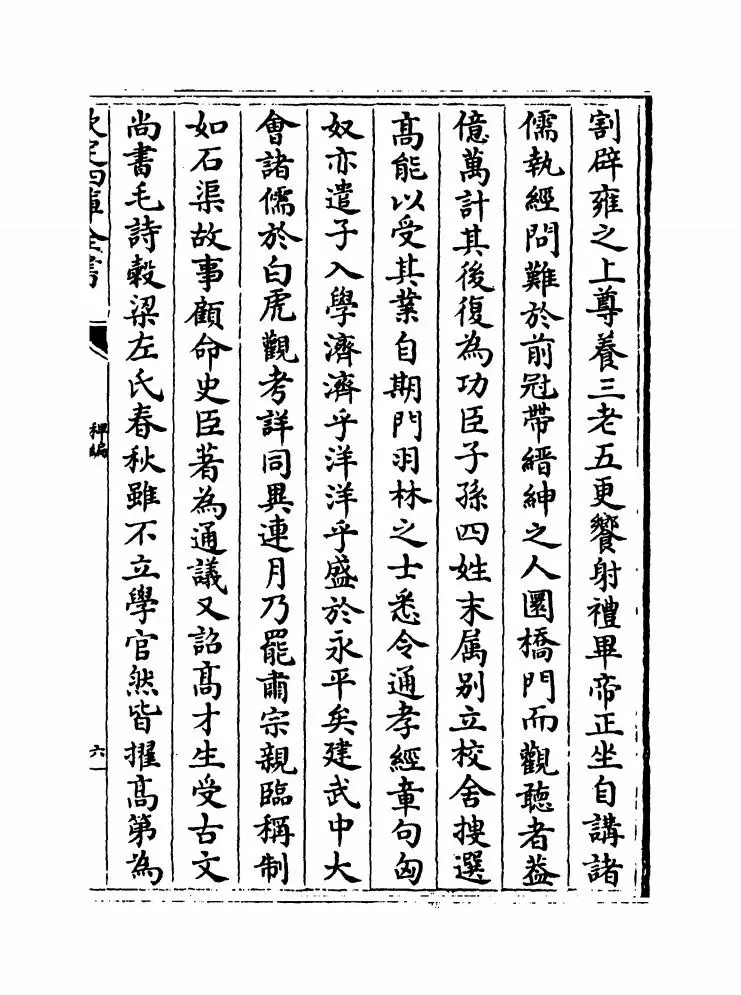 割辟雍之上尊養三老五更饗射禮畢帝正坐自講諸
儒執經問難於前冠帶縉紳之人圜橋門而觀聽者葢
億萬計其後復為功臣子孫四姓末属别立校舍搜選
髙能以受其業自期門羽林之士悉令通孝經章句匈
奴亦遣子入學濟濟乎洋洋乎盛於永平矣建武中大
會諸儒於白虎觀考詳同異連月乃罷肅宗親臨稱制
如石渠故事顧命史臣著為通議又詔髙才生受古文
尚書毛詩榖梁左氏春秋雖不立學官然皆擢髙第為
欽定四庫全書
稗編
六一